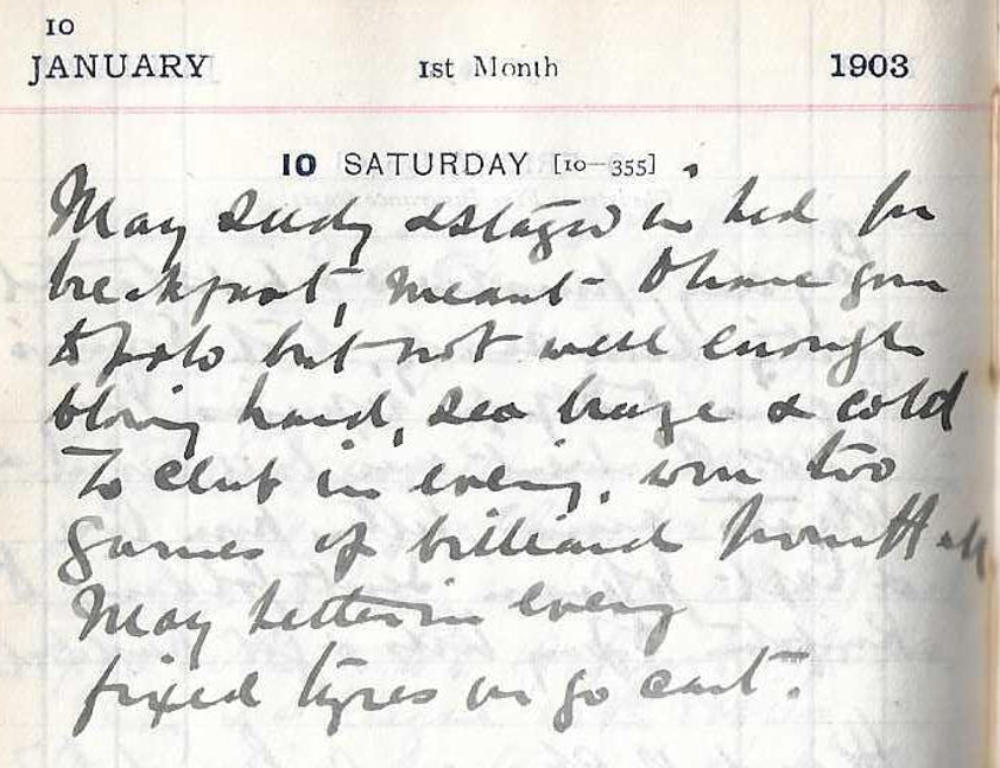 10
JANUARY 1st Month 1903
10 SATURDAY [10—355]
May seedy & stayed in bed for
breakfast, meant to have gone
to polo but not well enough
bloing hard, sea braze & cold
To club in evening, won two
games of billiards from Hall
May better in evening
fixed tyres on go cart.